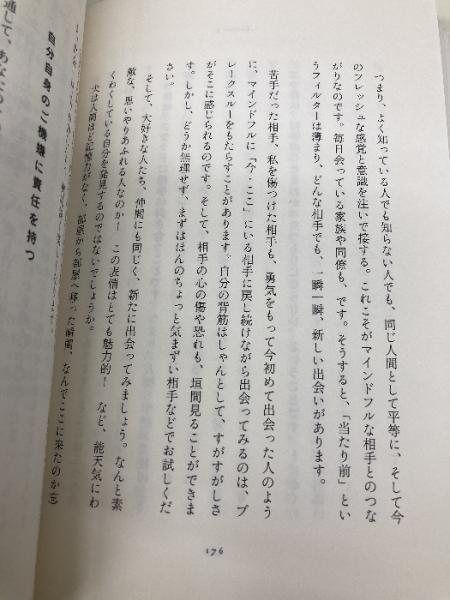 つまり、よく知っている人でも知らない人でも、同じ人間として平等に、そして今
のフレッシュな感覚と意識を注いで接する。これこそがマインドフルな相手とのつな
がりなのです。毎日会っている家族や同僚も、です。そうすると、「当たり前」とい
うフィルターは薄まり、どんな相手でも、一瞬一瞬、新しい出会いがあります。
苦手だった相手、私を傷つけた相手も、勇気をもって今初めて出会った人のよう
に、マインドフルに「今・ここ」にいる相手に戻し続けながら出会ってみるのは、ブ
レークスルーをもたらすことがあります。自分の背筋はしゃんとして、すがすがしさ
がそこに感じられるのです。そして、相手の心の傷や恐れも、垣間見ることができま
す。しかし、どうか無理せず、まずはほんのちょっと気まずい相手などでお試しくだ
さい。
そして、大好きな人たち、仲間にも同じく、新たに出会ってみましょう。なんと素
敵な、思いやりあふれる人なのか！ この表情はとても魅力的！ など、能天気にわ
くわくしている自分を発見するのではないでしょうか。
犬は人間ほど記憶力がなく、部屋から部屋へ移った瞬間、なんでここに来たのか忘
176
自分自身のご機嫌に責任を持つ
通して、あなたの